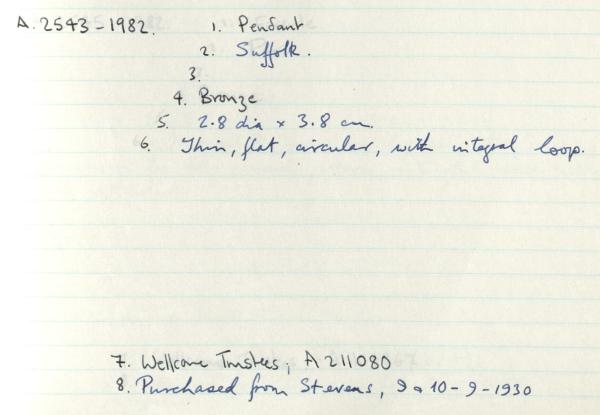 A. 2543-1982. 1. Pendant
2. Suffolk.
3.
4. Bronze
5. 2.8 dia × 3.8 cm.
6. Thin, flat, circular, with integral loop.
7. Wellcome Trustees; A 211080
8. Purchased from Stevens, 9 & 10-9-1930